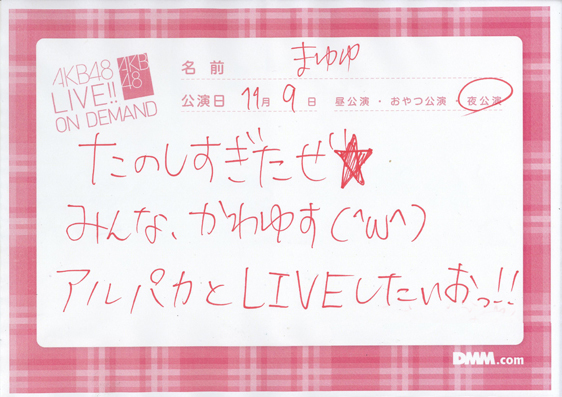 AKB48
LIVE!!
ON DEMAND
AKB
48
名前 まゆゆ
公演日 11月 9日 昼公演・おやつ公演・夜公演
たのしすぎたぜ★
みんな、かわゆす(^ω^)
アルパカとLIVEしたいおっ!!
DMM.com